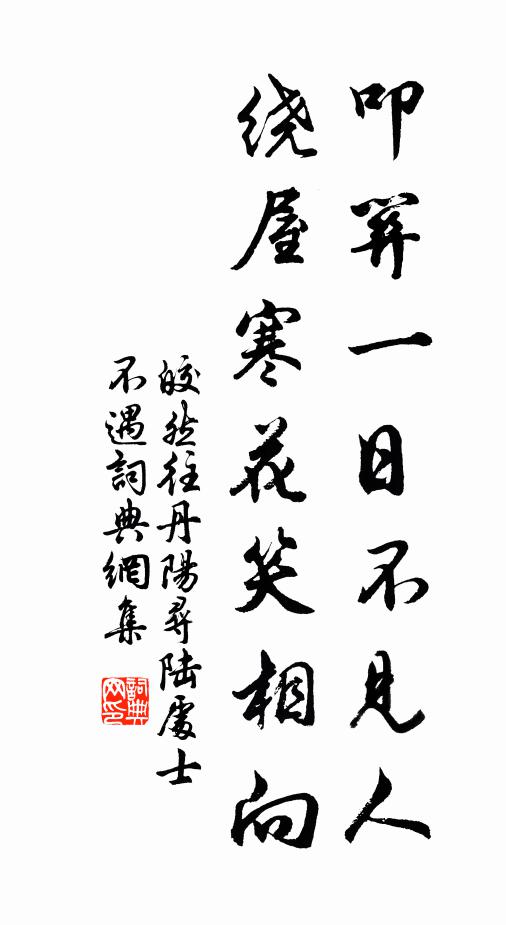 叩關一日不見人
绕屋寒花笑相向
皎然往丹陽尋陸處士
不遇詞典網集
詞典
网印